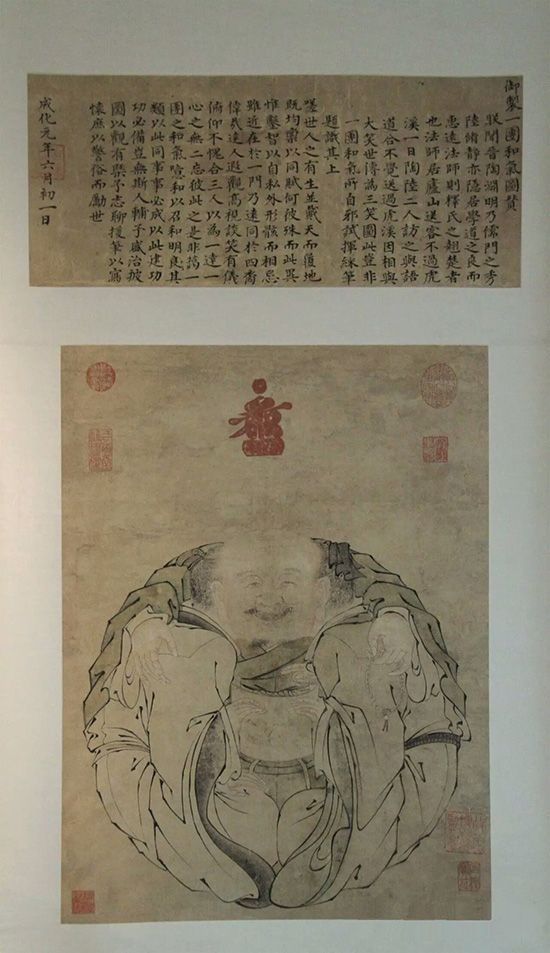 御製一團和氣圖贊
朕聞晉陶淵明乃儒門之秀
陸脩靜亦隱居學道之良而
惠遠法師則釋氏之翹楚者
也法師居廬山送客不過虎
溪一日陶陸二人訪之與語
道合不覺送過虎溪因相與
大笑世傳為三笑圖此豈非
一團和氣所自邪試揮綵筆
題識其上
嗟世人之有生並戴天而履地
既均禀以同賦何彼殊而此異
惟鑿智以自私外形骸而相忌
雖近在於一門乃遠同於四裔
偉哉達人遐觀高視談笑有儀
俯仰不愧合三人以為一達一
心之無二忘彼此之是非藹一
團之和氣噫和以召和明良其
類以此同事事必成以此建功
功必備豈無斯人輔予盛治披
圖以觀有槩予志聊援筆以寫
懷庶以警俗而勵世
成化元年六月初一日